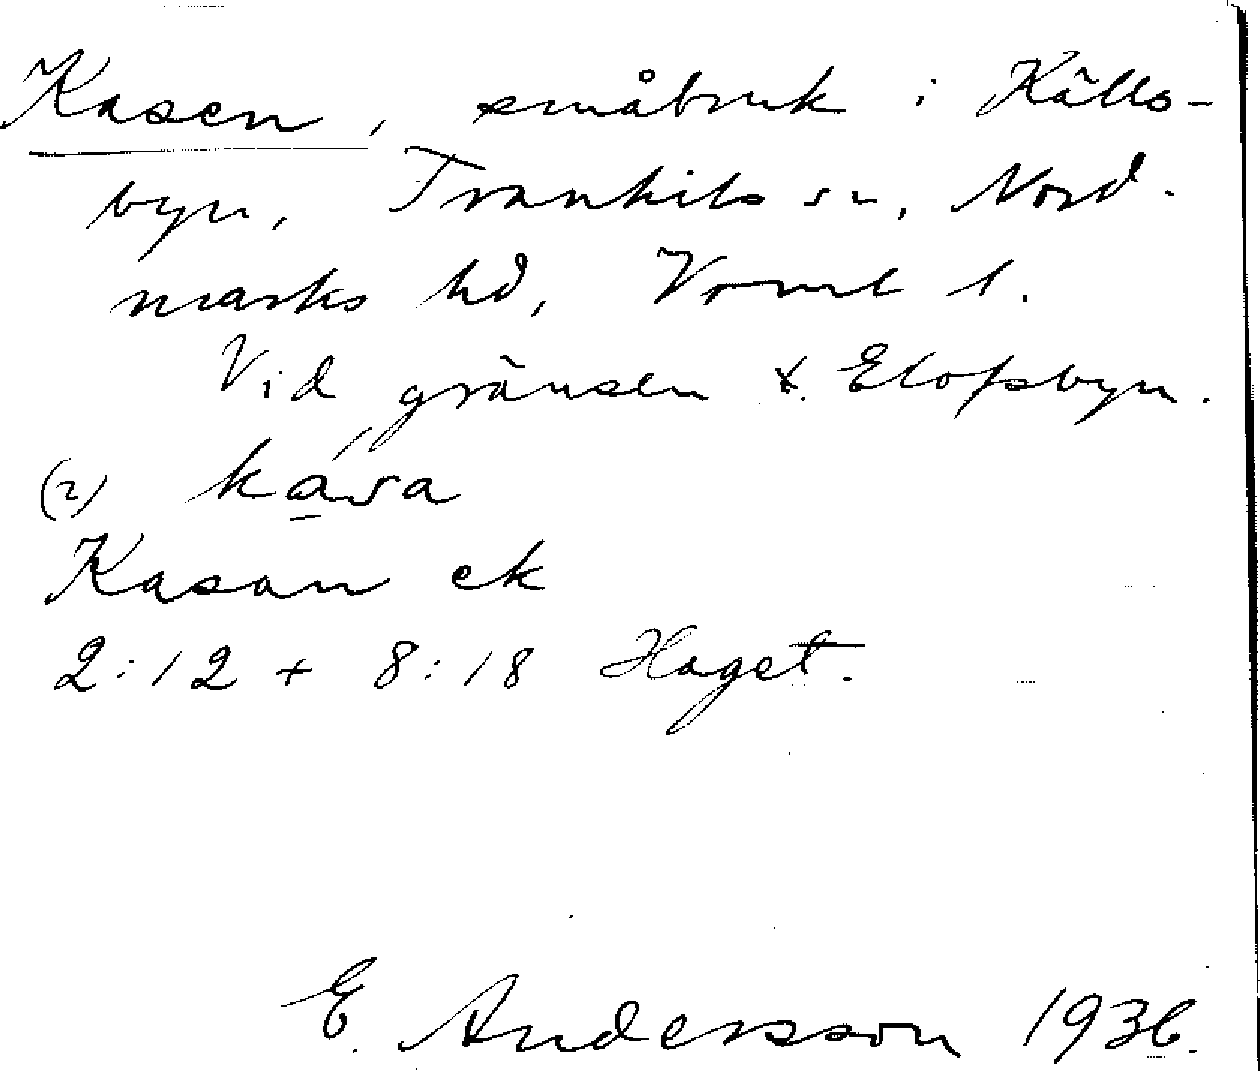 Kasen, småbruk i Källs-
byn, Trankils sn, Nord-
marks hd, Vrml l.
Vid gränsen t. Elofsbyn.
(2) ka̱sa
Kasan ek
2:12 + 8:18 Haget.
E. Andersson 1936.